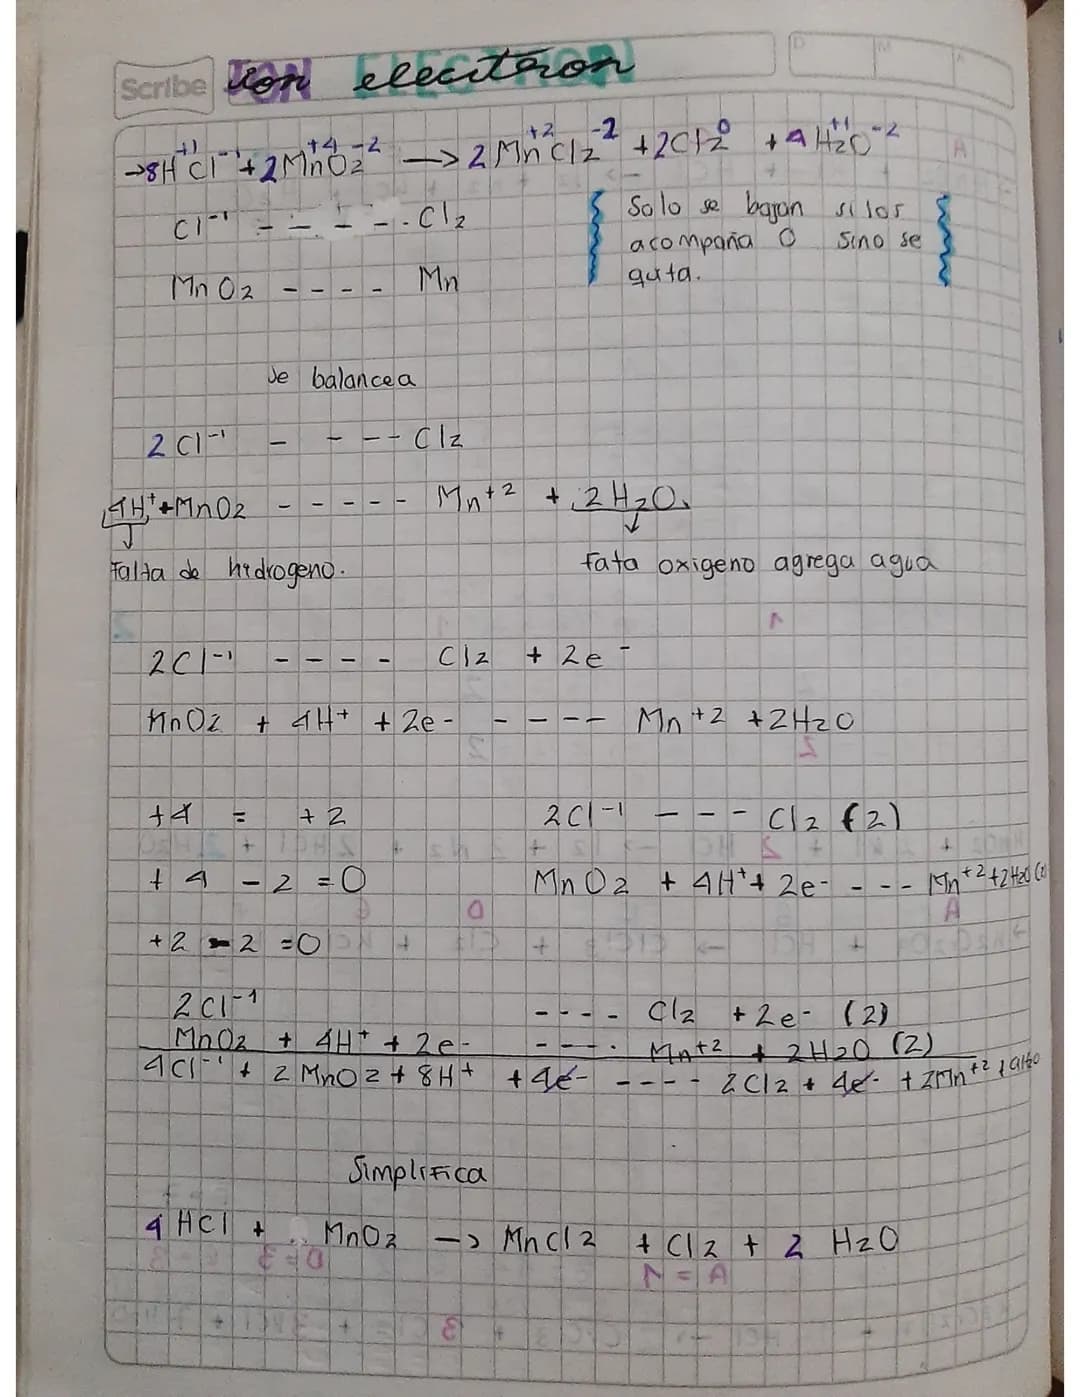 Scribe Ion electron
D M A
→8H⁺¹Cl⁻¹ + 2Mn⁺⁴O₂⁻² —> 2Mn⁺²Cl₂⁻² + 2Cl₂⁰ + 4H₂⁺¹O⁻²
Cl⁻¹ - - - - - Cl₂
MnO₂ - - - - Mn
Solo se bajan si los
acompaña O sino se
quta.
se balancea
2Cl⁻¹ - - - - Cl₂
4H⁺ + MnO₂ - - - - - Mn⁺² + 2H₂O
Falta de hidrogeno.
Fata oxigeno agrega agua
2Cl⁻¹ - - - - Cl₂ + 2e⁻
MnO₂ + 4H⁺ + 2e- - - - - Mn⁺² + 2H₂O
+4 = +2
2Cl⁻¹ - - - Cl₂ (2)
+4 - 2 = 0
MnO₂ + 4H⁺ + 2e- - - - Mn⁺² + 2H₂O (2)
+2 - 2 = 0
2Cl⁻¹ - - - - Cl₂ + 2e- (2)
MnO₂ + 4H⁺ + 2e- - - - . Mn⁺² + 2H₂O (2)
4Cl⁻¹ + 2MnO₂ + 8H⁺ + 4e- - - - - 2Cl₂ + 4e- + 2Mn⁺² + 4H₂O
Simplifica
4 HCl + MnO₂ —> MnCl₂ + Cl₂ + 2 H₂O